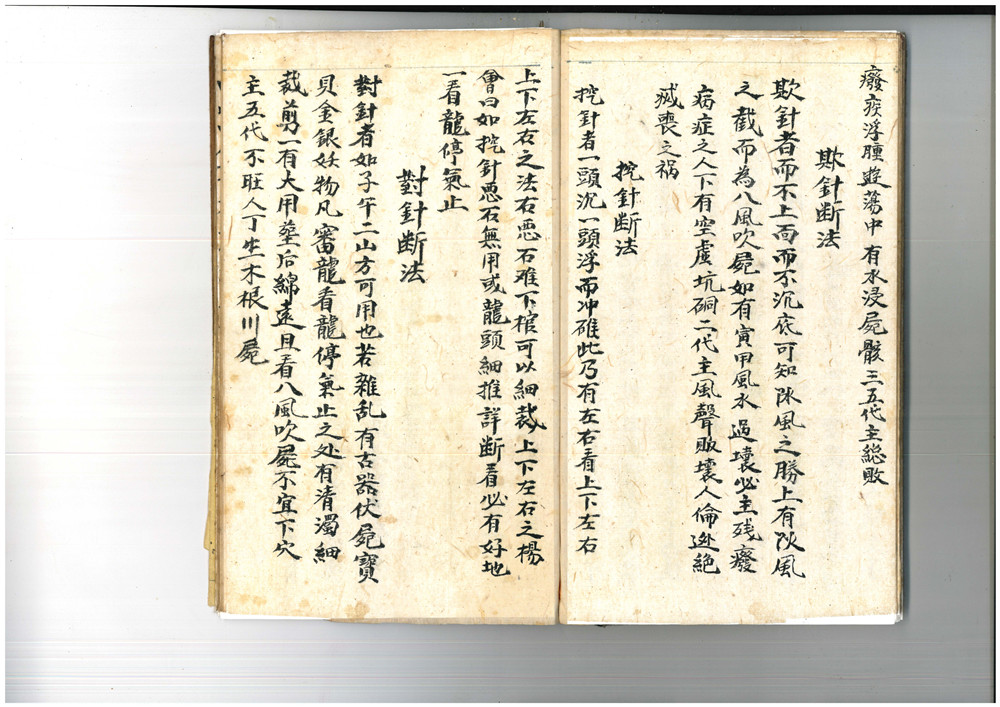 癈疾浮腫遊蕩中有水浸屍骸三五代主総敗
欺針断法
欺針者而不上面而不沉底可知陈风之勝上有陝風
之截而為八風吹屍如有寅甲風水過壊必主残癈
病症之人下有空虚坑硐二代主風聲敗壊人倫逆絶
滅喪之祸
挖針断法
挖針者一頭沉一頭浮而冲碓此乃有左右看上下左右
上下左右之法右恶石难下棺可以細裁上下左右之楊
會曰如挖針恶石無用或龍頭細推詳断看必有好地
一看龍停氣止
對針断法
對針者如子午二山方可用也若雜乱有古器伏屍寶
貝金銀妖物凡審龍看龍停氣止之处有清濁細
裁剪一有大用塟后綿遠且看八風吹屍不宜下穴
主五代不旺人丁生木根川屍